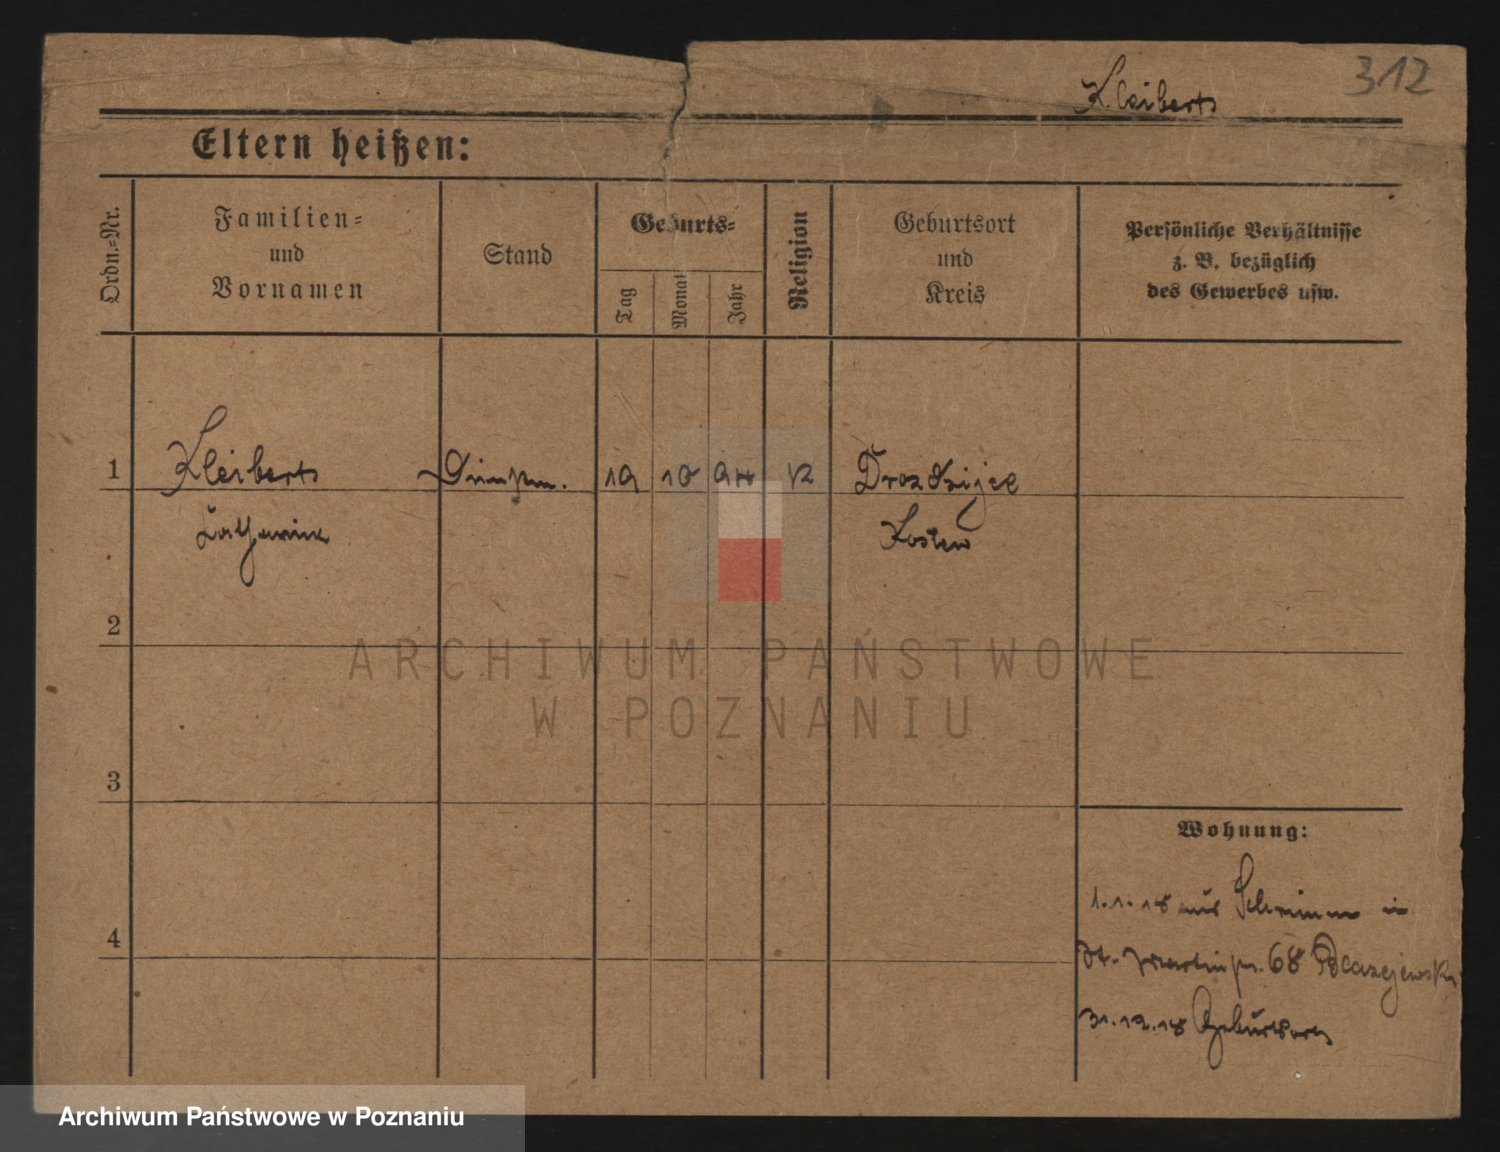 312
Kleiberts
Eltern heißen:
Ordn.-Nr.
Familien-
und
Vornamen
Stand
Geburts-
Tag
Monat
Jahr
Religion
Geburtsort
und
Kreis
Persönliche Verhältnisse
z. B. bezüglich
des Gewerbes usw.
1 Kleiberts 19 10 K
Kosten
2
ARCHIWUM PAŃSTWOWE
W POZNANIU
3
Wohnung:
1.1.18 aus Schrimm in
4
St. Martinstr. 68
31.12.18 Geburtsort
Archiwum Państwowe w Poznaniu